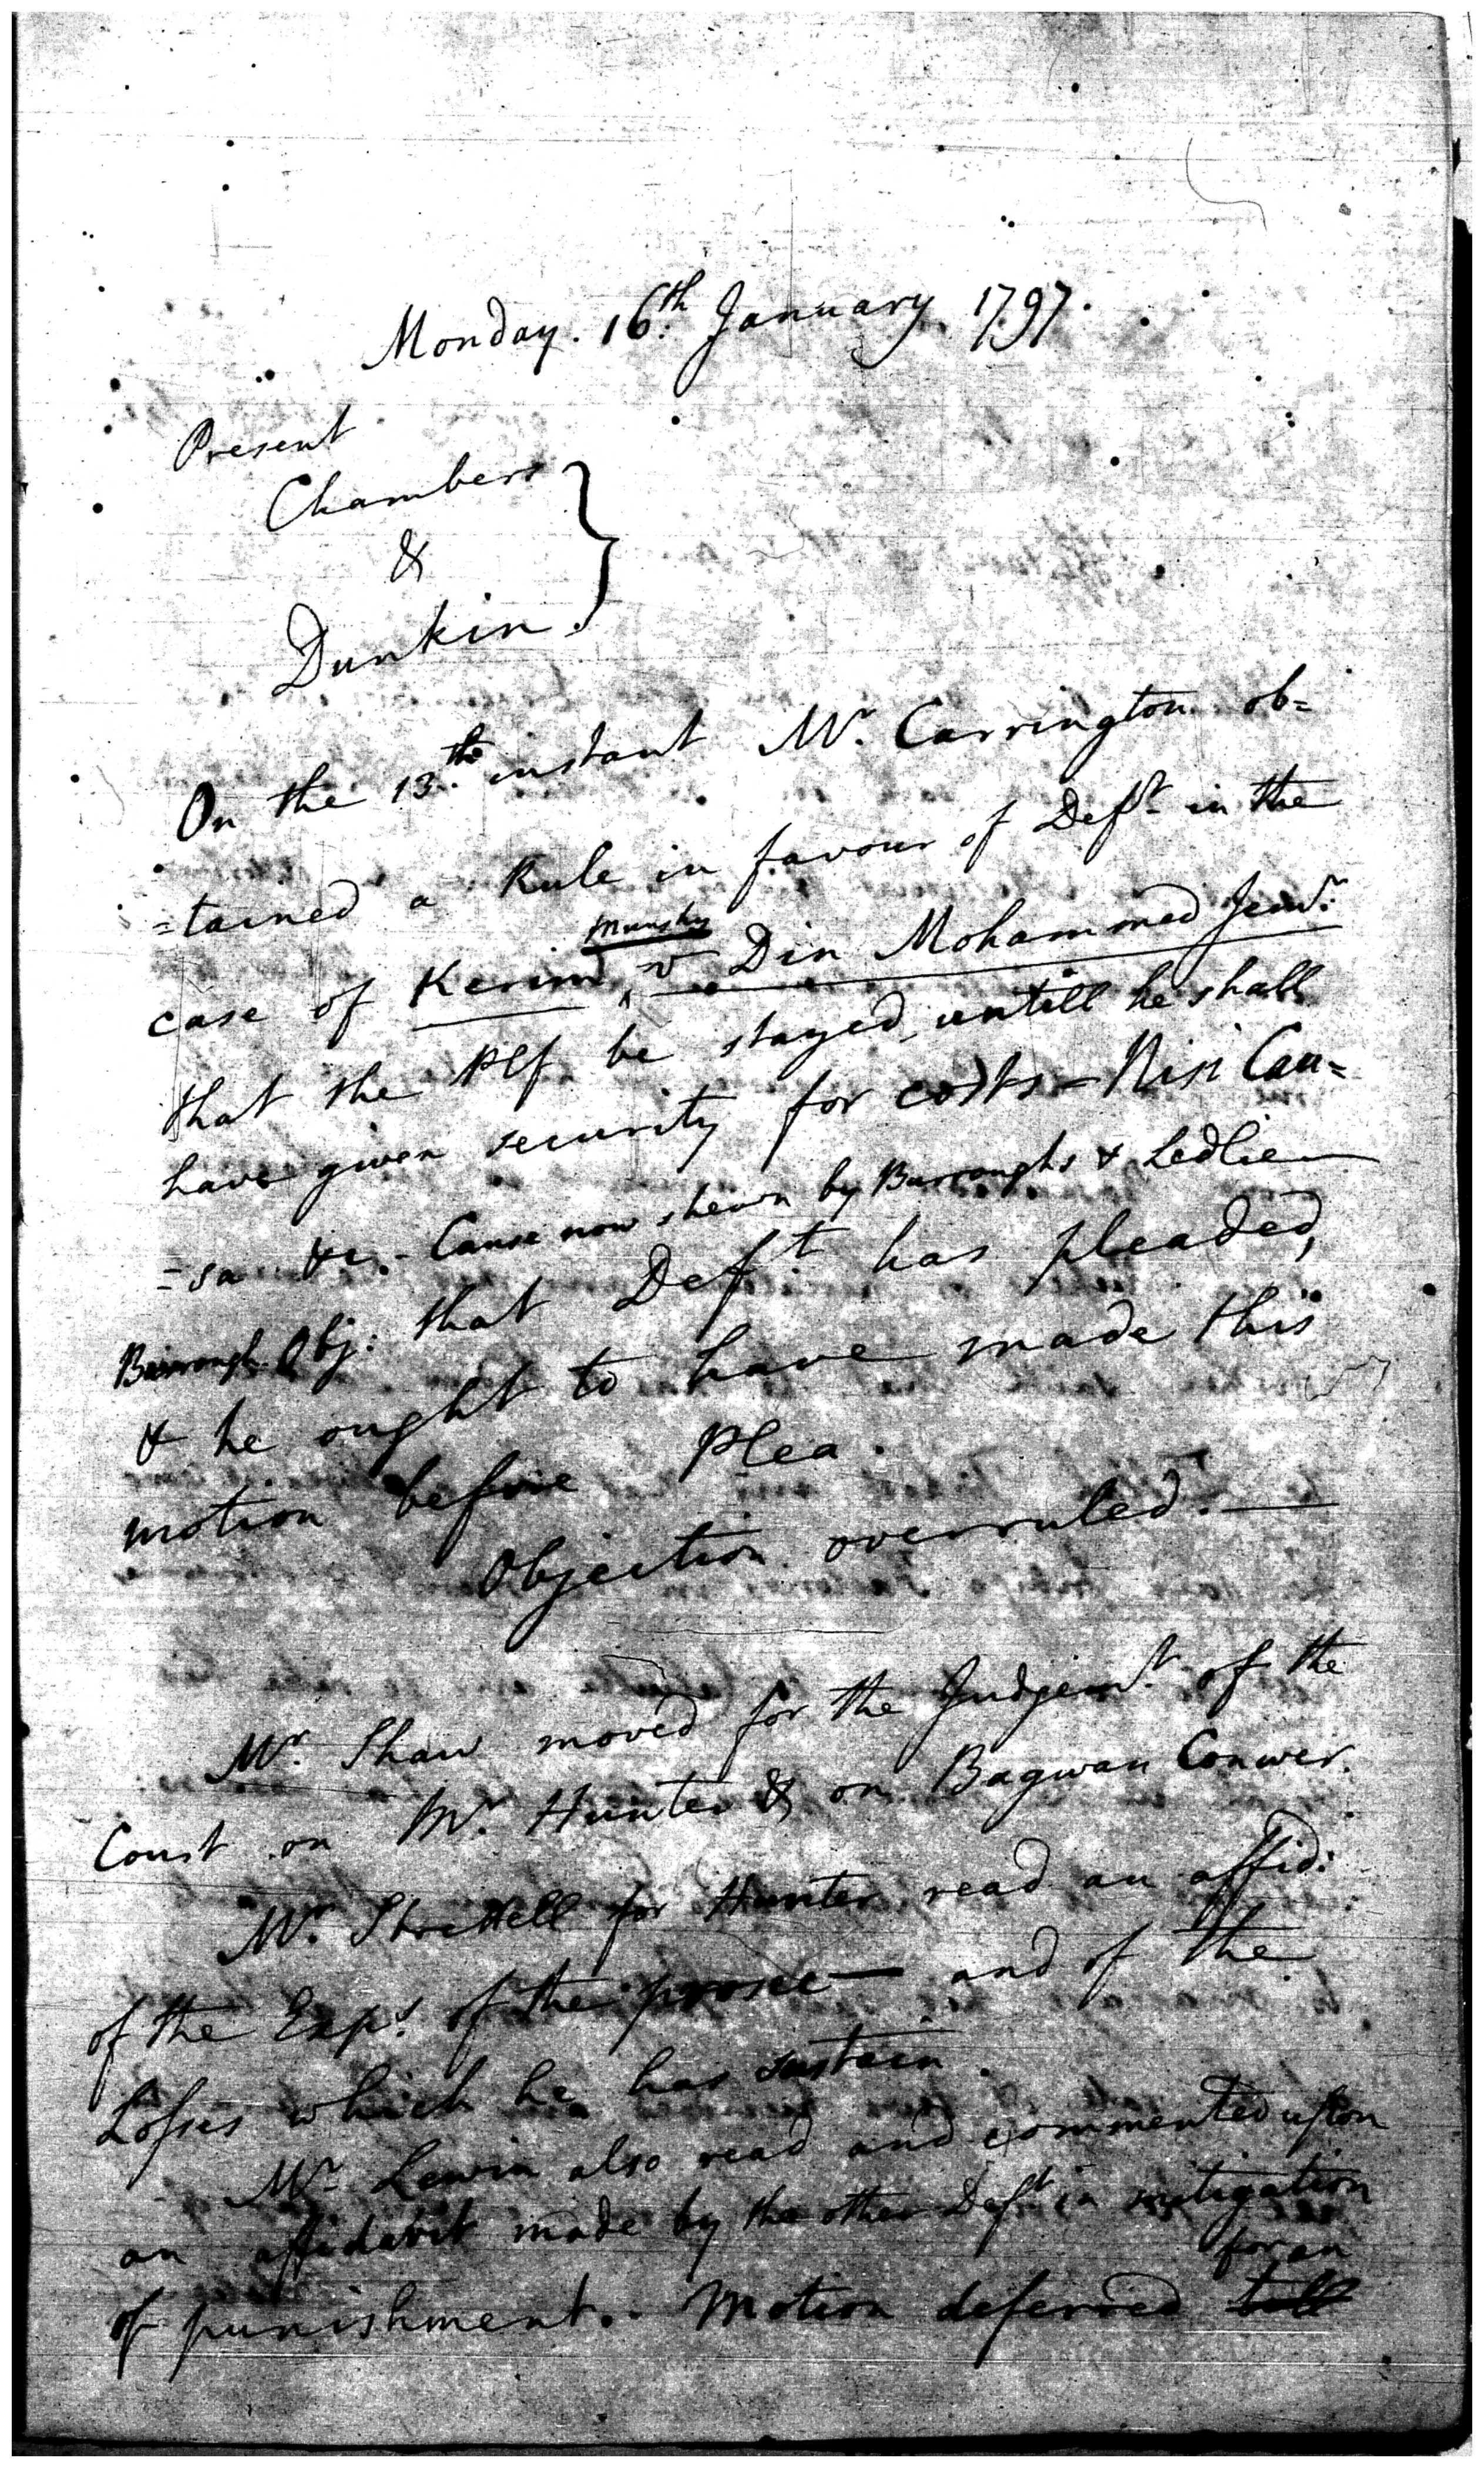 Monday. 16th January 1797.
Present
Chambers
&
Dunkin.
On the 13th instant Mr. Carrington ob=
=tained a Rule in favour of Deft in the
Munshy
case of Kerim ^ v Din Mohammed Jemr.
that the Plf be stayed, untill he shall
have given security for costs - Nisi Cau=
=sa &c. - Cause now shewn by Burroughs & Ledlie
Burrough. Obj: that Deft. has pleaded,
& he ought to have made this
motion before Plea.
Objection overruled. —
Mr. Shaw moved for the Judgemt. of the
Court on Mr. Hunter & on Bagwan Conwer.
Mr. Strettell for Hunter read an affid:
of the Exps. of the prosec— and of the
Losses which he has sustain.
Mr. Lewin also read and commented upon
an affidavit made by the other Deft in mitigation
for an
of punishment. Motion deferred till